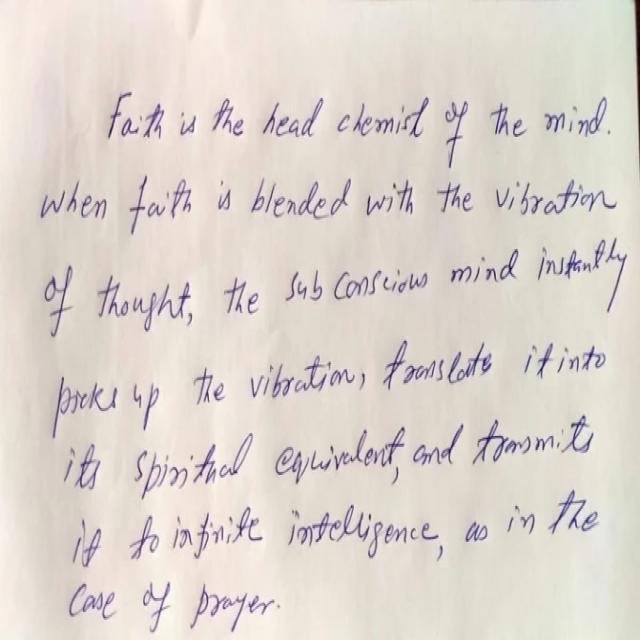 Faith is the head chemist of the mind.
When faith is blended with the vibration
of thought, the sub conscious mind instantly
picks up the vibration, translate it into
its spiritual equivalent, and transmits
it to infinite intelligence, as in the
case of prayer.